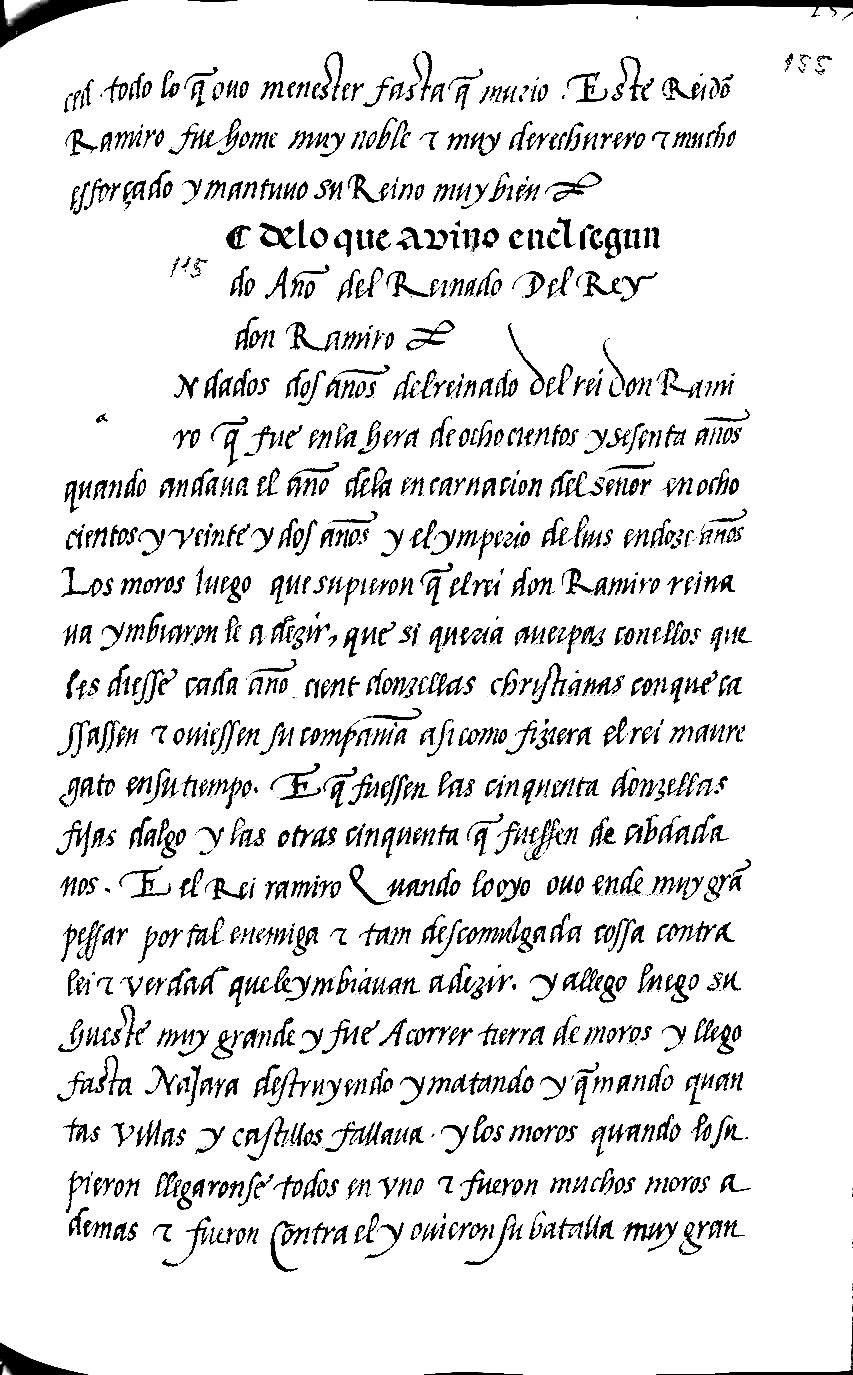 155
ced todo lo q̃ ouo menester fasta q̃ murio . Este Rei dõ
Ramiro fue home muy noble ⁊ muy derechurero ⁊ mucho
esforçado y mantuuo su Reino muy bien
¶ delo que avino en el segun
115
do Año del Reinado Del Rey
don Ramiro
Ndados dos años del reinado del rei don Rami
a
ro q̃ fue en la hera de ochocientos y sesenta años
quando andaua el año dela encarnacion del señor en ocho
cientos y veinte y dos años y el ymperio de luis en doze años
Los moros luego que supieron q̃ el rei don Ramiro reina
ua ymbiaron le a dezir, que si queria auer paz con ellos que
les diesse cada año cient donzellas christianas con que ca
ssassen ⁊ ouiessen su compañia asi como fiziera el rei maure
gato en su tiempo. E q̃ fuessen las cinquenta donzellas
fijas dalgo y las otras cinquenta q̃ fuessen de cibdada
nos. E el Rei ramiro Quando lo oyo ouo ende muy grã
pessar por tal enemiga ⁊ tam descomulgada cossa contra
lei ⁊ verdad que le ymbiauan a dezir. y allego luego su
hueste muy grande y fue A correr tierra de moros y llego
fasta Najara destruyendo y matando y q̃mando quan
tas Villas y castillos fallaua. y los moros quando lo su
pieron llegaronse todos en vno ⁊ fueron muchos moros a
demas ⁊ fueron Contra el y ouieron su batalla muy gran